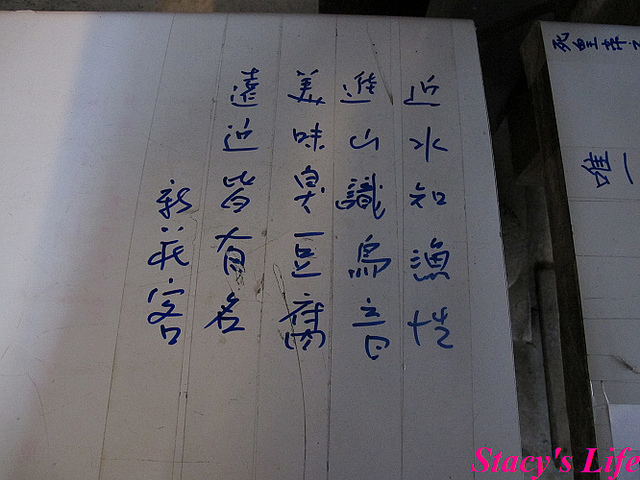 近水知漁性
進山識鳥音
美味臭豆腐
遠近皆有名
新莊客
唯一
Stacy's Life